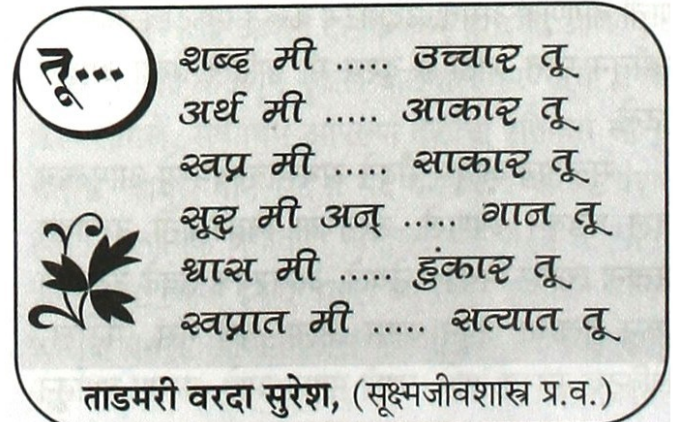 तू...
शब्द मी ..... उच्चार तू
अर्थ मी ..... आकार तू
स्वप्न मी ..... साकार तू
सूर मी अन् ..... गान तू
श्वास मी ..... हुंकार तू
स्वप्नात मी ..... सत्यात तू
ताडमरी वरदा सुरेश, (सूक्ष्मजीवशास्त्र प्र.व.)